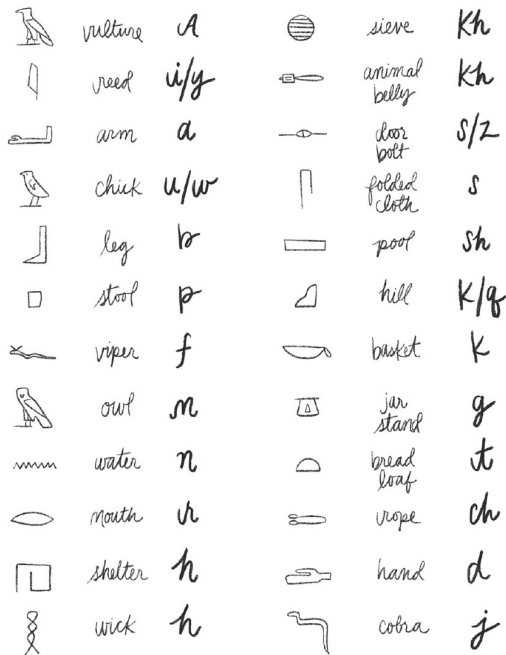 vulture A
reed i/y
arm a
chick u/w
leg b
stool p
viper f
owl m
water n
mouth r
shelter h
wick h
sieve Kh
animal belly Kh
door bolt s/z
folded cloth s
pool sh
hill K/q
basket K
jar stand g
bread loaf t
rope ch
hand d
cobra j